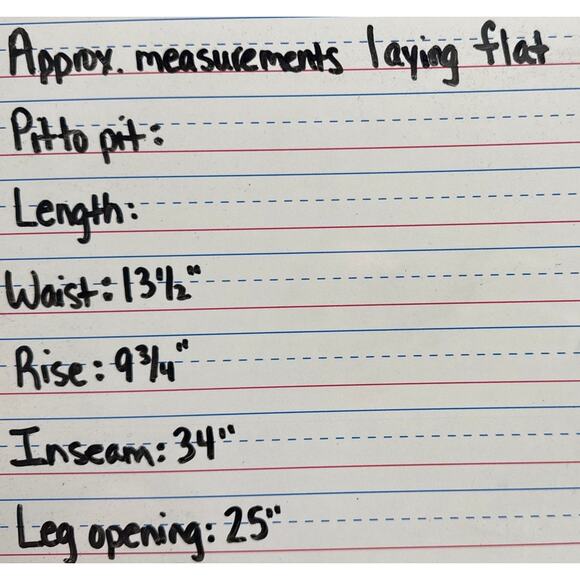 Approx. measurements laying flat
Pit to pit:
Length:
Waist: 13 1/2"
Rise: 9 3/4"
Inseam: 34"
Leg opening: 25"